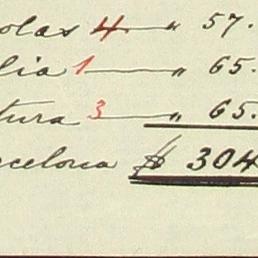 olas 4 " 57.
lia 1 " 65.
tura 3 " 65.
celona $ 304